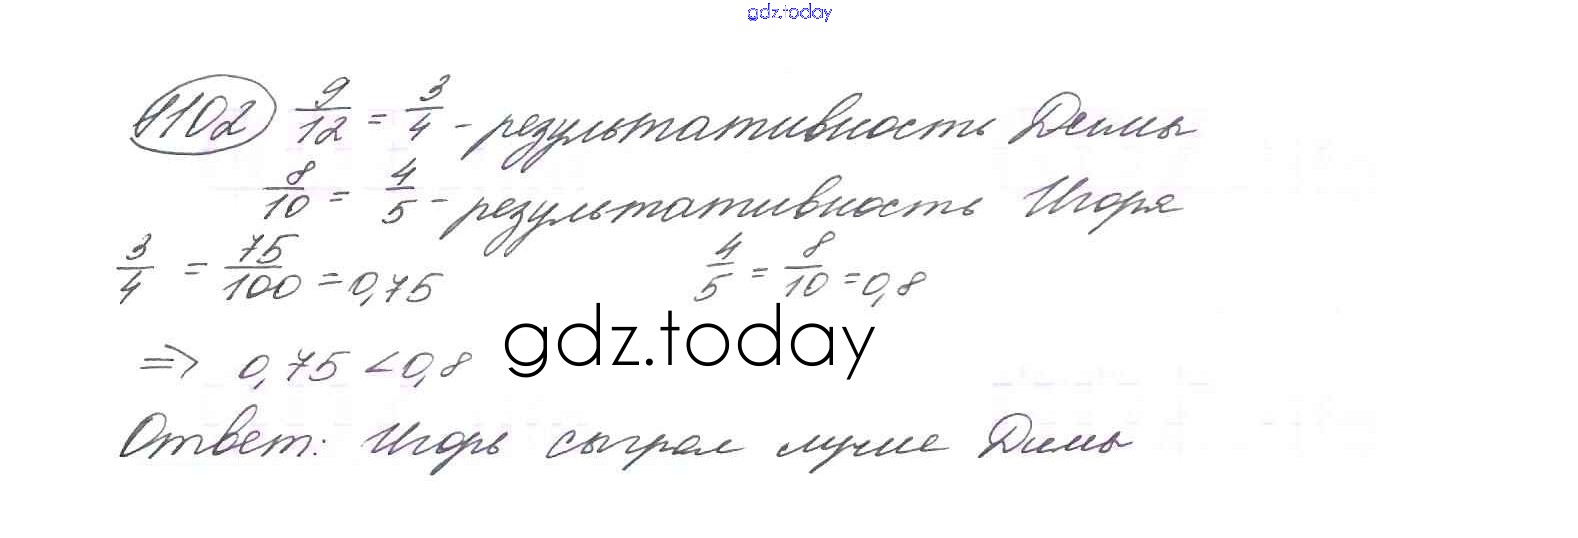 gdz.today
1102 9/12 = 3/4 - результативность Димы
8/10 = 4/5 - результативность Игоря
3/4 = 75/100 = 0,75 4/5 = 8/10 = 0,8
⇒ 0,75 < 0,8
gdz.today
Ответ: Игорь сыграл лучше Димы